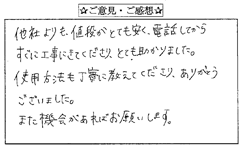 ☆ご意見・ご感想☆
他社よりも、値段がとても安く、電話してから
すぐに工事にきてくださり、とても助かりました。
使用方法も丁寧に教えてくださり、ありがとう
ございました。
また機会があればお願いします。